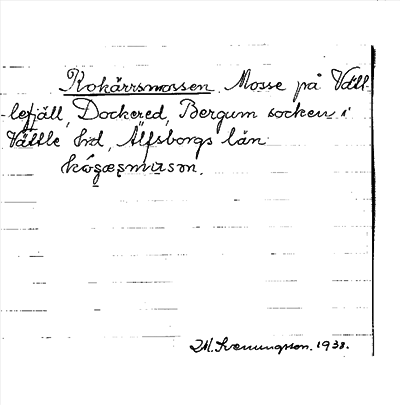 Kokärrsmossen. Mosse på Vätt-
lefjäll, Dockered, Bergum socken i
Vättle hrd, Älfsborgs län
M. Svenungsson. 1938.